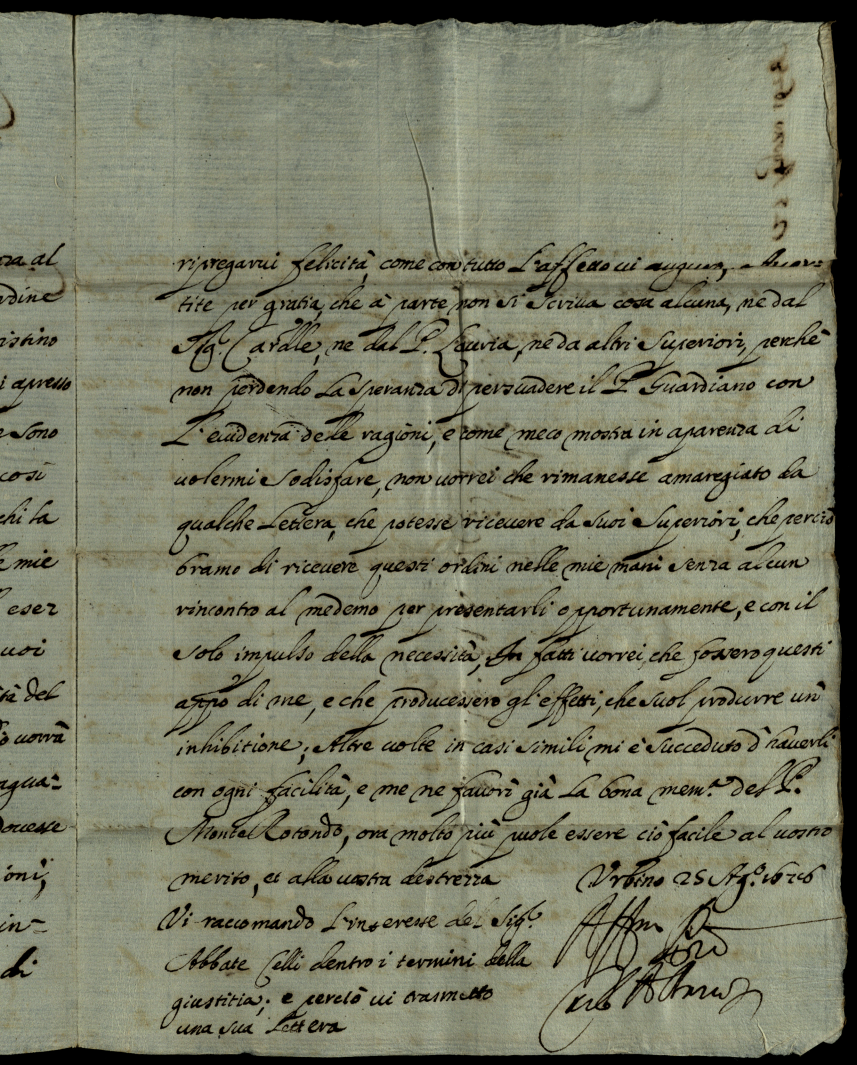 za al
rdine
istino
i apresso
e sono
così
chi la
e mie
l eser
uoi
tà del
vorrà
agua=
dovesse
ioni,
in=
di
ripregarvi felicità, come con tutto l'affetto vi auguro,
tite per gratia, che à parte non si scriva cosa alcuna, ne dal
Sig.r Caralle, ne dal P. Lauria, ne da altri Superiori, perchè
non perdendo la speranza di persuadere il P. Guardiano con
l'evidenza delle ragioni, e come meco mostra in aparenza di
volermi sodisfare, non vorrei che rimanesse amaregiato da
qualche lettera, che potesse ricevere da suoi Superiori, che perciò
bramo di ricevere questi ordini nelle mie mani senza alcun
rincontro al medemo per presentarli opportunamente, e con il
solo impulso della necessità, In fatti vorrei, che fossero questi
appò di me, e che producessero gl'effetti, che suol produrre un
inhibitione; Altre volte in casi simili mi è succeduto d'haverli
con ogni facilità, e me ne favorì già la bona mem.a del P.
Monte Rotondo, ora molto più puole essere ciò facile al vostro
merito, et alla vostra destrezza
Urbino 25 Ag.o
Vi raccomando l'interesse del Sig.r
Abbate Celli dentro i termini della
giustitia; e perciò vi trasmetto
una sua lettera